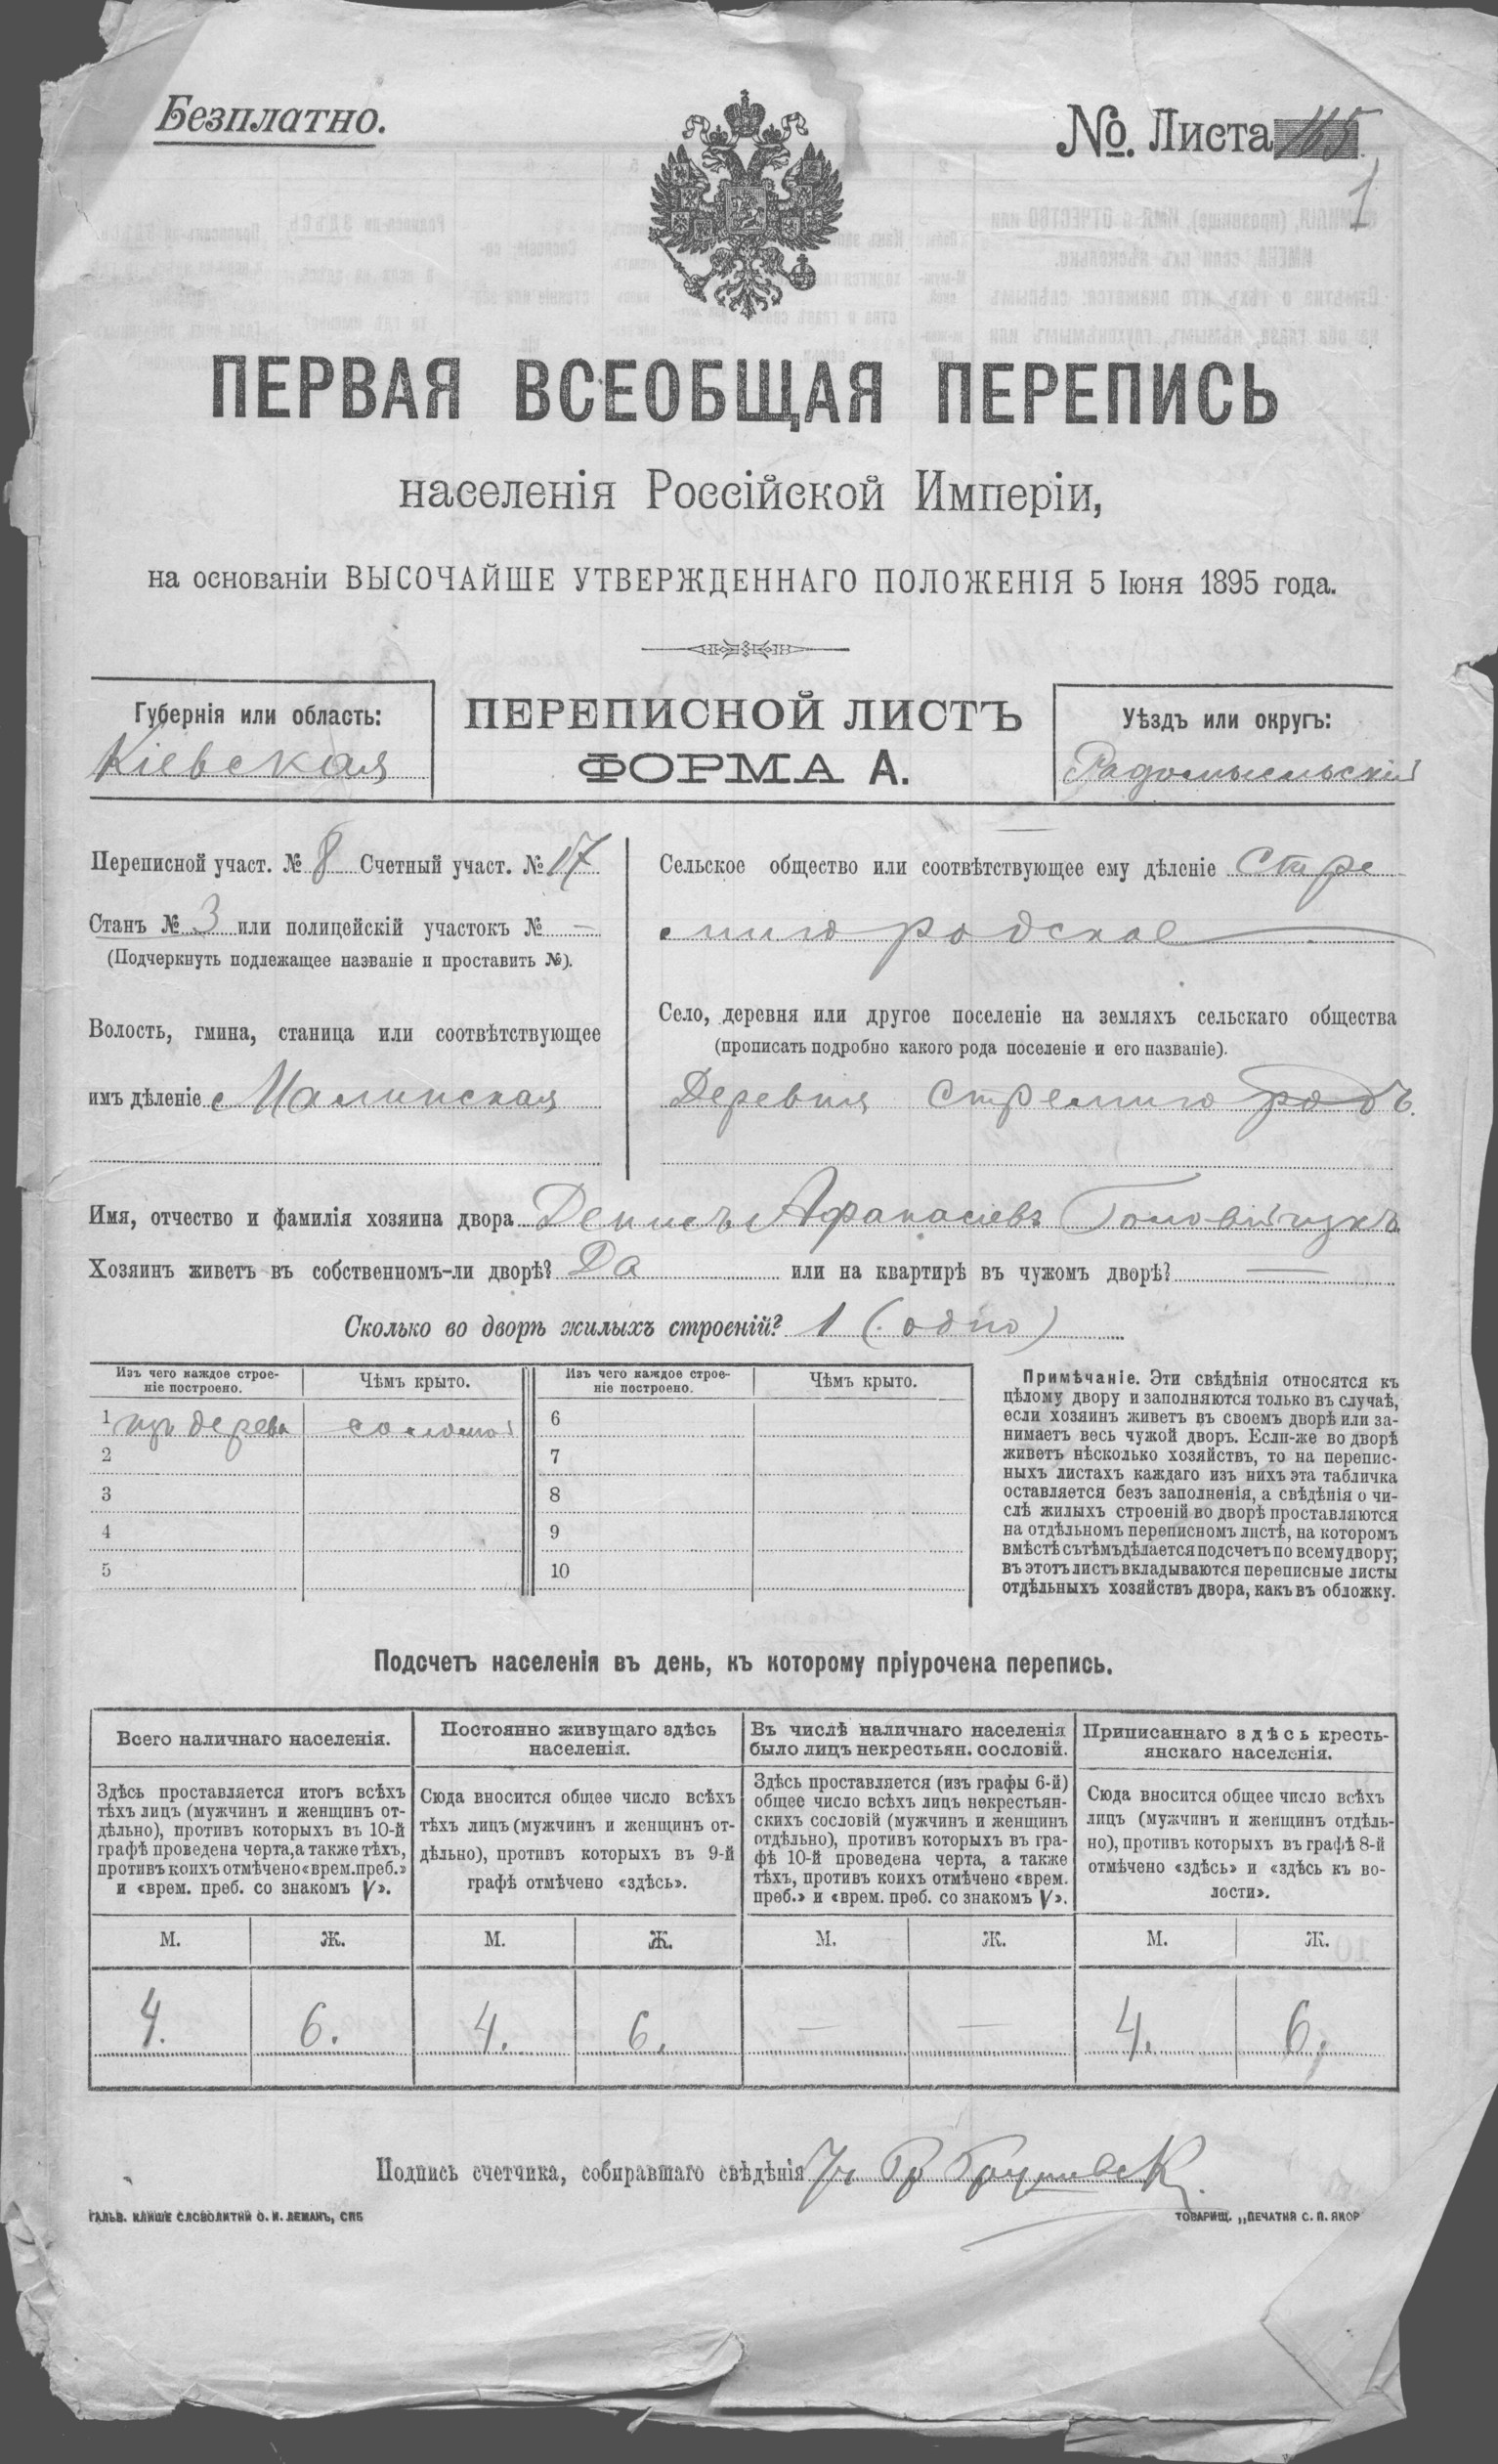 Безплатно.
№. Листа 165
1
ПЕРВАЯ ВСЕОБЩАЯ ПЕРЕПИСЬ
населенія Россійской Имперіи,
на основаніи ВЫСОЧАЙШЕ УТВЕРЖДЕННАГО ПОЛОЖЕНІЯ 5 Іюня 1895 года.
Губернія или область:
Кіевская
ПЕРЕПИСНОЙ ЛИСТЪ
ФОРМА А.
Уѣздъ или округъ:
Радомысльскій
Переписной участ. № 8 Счетный участ. № 17
Станъ № 3 или полицейскій участокъ № —
(Подчеркнуть подлежащее названіе и проставить №).
Волость, гмина, станица или соотвѣтствующее
имъ дѣленіе Малинская
Сельское общество или соотвѣтствующее ему дѣленіе Стре
мигородское
Село, деревня или другое поселеніе на земляхъ сельскаго общества
(прописать подробно какого рода поселеніе и его названіе).
Деревня Стремигородъ.
Имя, отчество и фамилія хозяина двора Денисъ Афанасіевъ
Хозяинъ живетъ въ собственномъ-ли дворѣ? Да или на квартирѣ въ чужомъ дворѣ? —
Сколько во дворѣ жилыхъ строеній? 1 (одно)
Изъ чего каждое строе-
ніе построено.
Чѣмъ крыто.
Изъ чего каждое строе-
ніе построено.
Чѣмъ крыто.
1 изъ дерева соломой 6
2 7
3 8
4 9
5 10
Примѣчаніе. Эти свѣдѣнія относятся къ
цѣлому двору и заполняются только въ случаѣ,
если хозяинъ живетъ въ своемъ дворѣ или за-
нимаетъ весь чужой дворъ. Если-же во дворѣ
живетъ нѣсколько хозяйствъ, то на перепис-
ныхъ листахъ каждаго изъ нихъ эта табличка
оставляется безъ заполненія, а свѣдѣнія о чи-
слѣ жилыхъ строеній во дворѣ проставляются
на отдѣльномъ переписномъ листѣ, на которомъ
вмѣстѣ съ тѣмъ дѣлается подсчетъ по всему двору;
въ этотъ листъ вкладываются переписные листы
отдѣльныхъ хозяйствъ двора, какъ въ обложку.
Подсчетъ населенія въ день, къ которому пріурочена перепись.
Всего наличнаго населенія.
Здѣсь проставляется итогъ всѣхъ
тѣхъ лицъ (мужчинъ и женщинъ от-
дѣльно), противъ которыхъ въ 10-й
графѣ проведена черта, а также тѣхъ,
противъ коихъ отмѣчено «врем. преб.»
и «врем. преб. со знакомъ V».
Постоянно живущаго здѣсь
населенія.
Сюда вносится общее число всѣхъ
тѣхъ лицъ (мужчинъ и женщинъ от-
дѣльно), противъ которыхъ въ 9-й
графѣ отмѣчено «здѣсь».
Въ числѣ наличнаго населенія
было лицъ некрестьян. сословій.
Здѣсь проставляется (изъ графы 6-й)
общее число всѣхъ лицъ некрестьян-
скихъ сословій (мужчинъ и женщинъ
отдѣльно), противъ которыхъ въ гра-
фѣ 10-й проведена черта, а также
тѣхъ, противъ коихъ отмѣчено «врем.
преб.» и «врем. преб. со знакомъ V».
Приписаннаго здѣсь кресть-
янскаго населенія.
Сюда вносится общее число всѣхъ
лицъ (мужчинъ и женщинъ отдѣль-
но), противъ которыхъ въ графѣ 8-й
отмѣчено «здѣсь» и «здѣсь къ во-
лости».
М. Ж. М. Ж. М. Ж. М. Ж.
4. 6. 4. 6. — — 4. 6,
Подпись счетчика, собиравшаго свѣдѣнія
ГАЛЬВ. КЛИШЕ СЛОВОЛИТНИ О. И. ЛЕМАНЪ, СПБ
ТОВАРИЩ. „ПЕЧАТНЯ С. П. ЯКОР